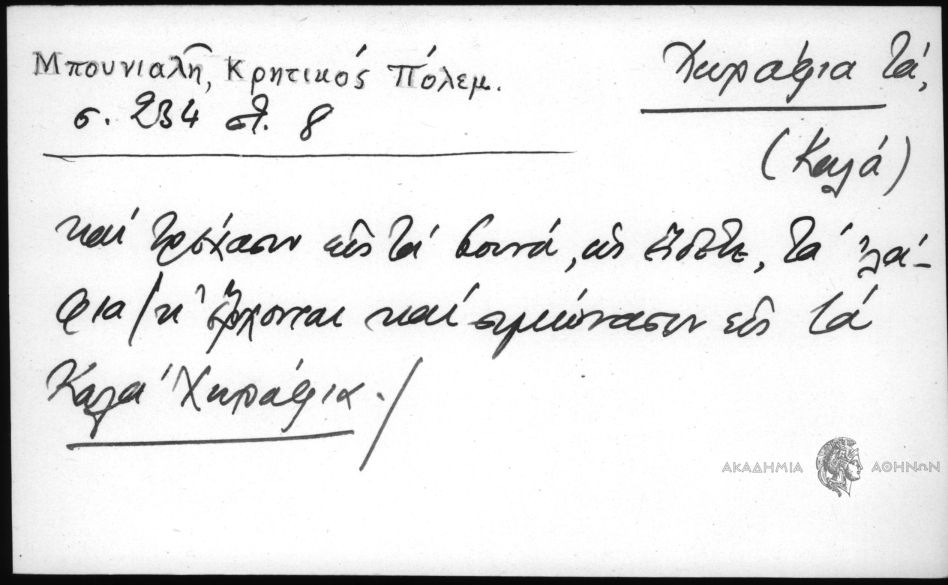 Μπουνιαλῆ, Κρητικός Πόλεμ.
σ. 234 στ. 8
Χωράφια τά,
(Καλά)
καί τρέχασιν εἰς τά βουνά, ὡς εἴδετε, τά ̓λά-
φια / κ' ἔρχονται καί σιμώνασιν εἰς τά
Καλά Χωράφια. /
ΑΚΑΔΗΜΙΑ ΑΘΗΝΩΝ